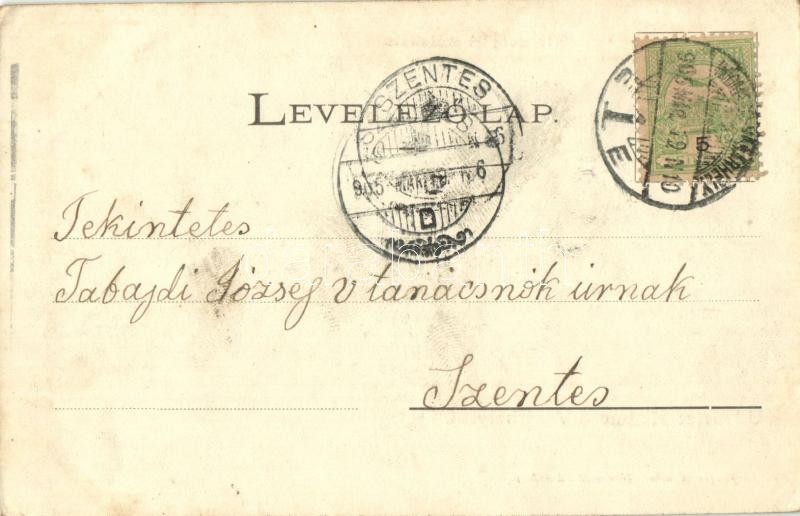 LEVELEZŐ-LAP.
SZENTES
905
6
D
Tekintetes
Tabajdi József v tanacsnók úrnak
Szentes